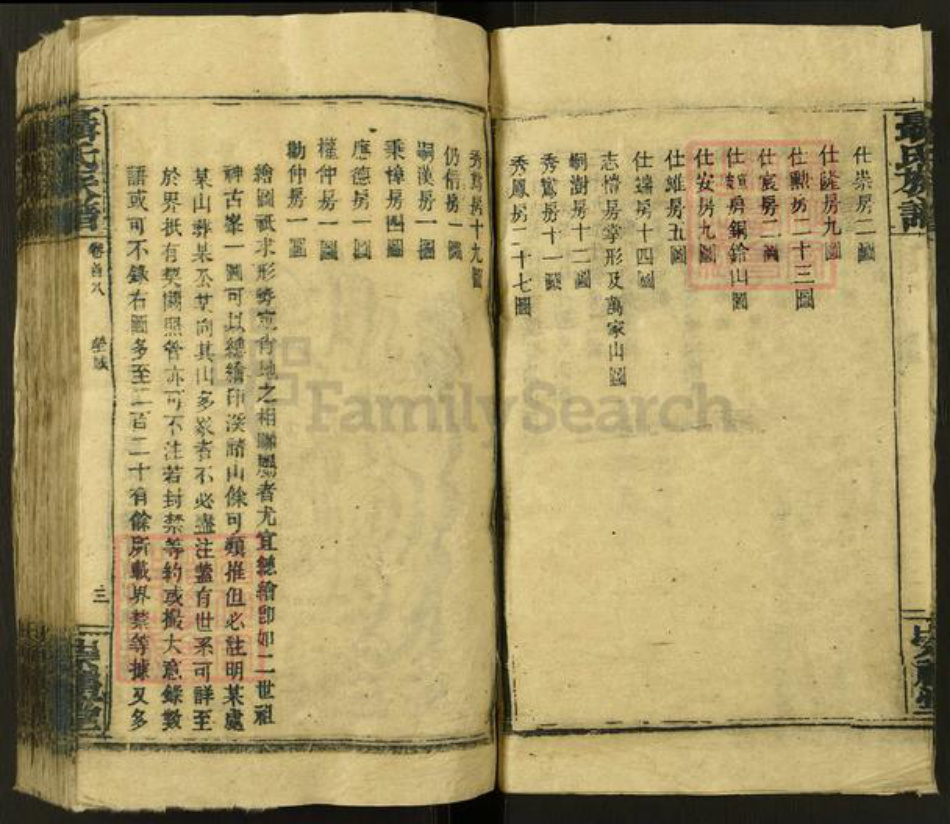 仕崇房二圖
仕隆房九圖
仕勲房二十三圖
仕宸房二圖
仕 房銅鈴山圖
仕安房九圖
仕維房五圖
仕端房十四圖
志惜房掌形及萬家山圖
嗣澍房十二圖
秀鸑房十一圖
秀鳳房二十七圖
秀鸞房十九圖
仍信房一圖
嗣漢房一圖
秉懷房四圖
應德房一圖
權仲房一圖
勤仲房一圖
繪圖祇求形勢 有地之相聯屬者尤宜總繪即如二世祖
神古峯一圖可以總繪印溪諸山餘可類推但必註明某處
某山葬某公某向其山多 者不必盡注蓋有世系可詳至
於界祇有契關照管亦可不注若封禁等約或撮大意錄數
語或可不錄右圖多至二百二十有餘所載界禁等據又多
卷首八
塋域
三
FamilySearch